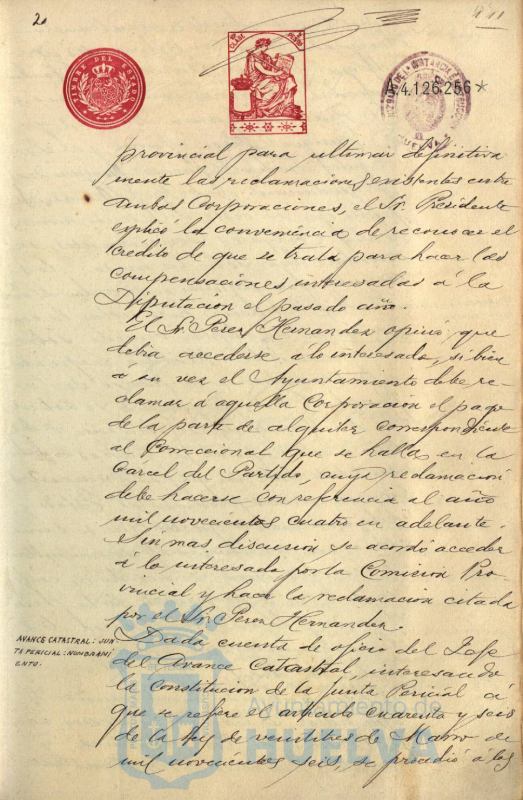 2
11
TIMBRE DEL ESTADO
A 4.126.256 ★
HUELVA
provincial para ultimar definitiva
mente las reclamaciones existentes entre
ambas Corporaciones, el Sr. Presidente
explicó la conveniencia de reconocer el
crédito de que se trata para hacer las
compensaciones interesadas á la
Diputacion el pasado año.
El Sr. Perez Hernandez opinó que
debia accederse á lo interesado, si bien
á su vez el Ayuntamiento debe re-
clamar á aquella Corporacion el pago
de la parte de alquiler correspondiente
al Correccional que se halla en la
Carcel del Partido, cuya reclamacion
debe hacerse con referencia al año
mil novecientos cuatro en adelante.
Sin mas discusion se acordó acceder
á lo interesado por la Comision Pro-
vincial y hacer la reclamacion citada
por el Sr. Perez Hernandez.
AVANCE CATASTRAL: JUN
TA PERICIAL: NOMBRAMI
ENTO.
Dada cuenta de oficio del Jefe
del Avance Catastral, interesando
la constitucion de la Junta Pericial á
que se refiere el articulo cuarenta y seis
de la ley de veintitres de Marzo de
mil novecientos seis, se procedió á los
Ayuntamiento de
HUELVA